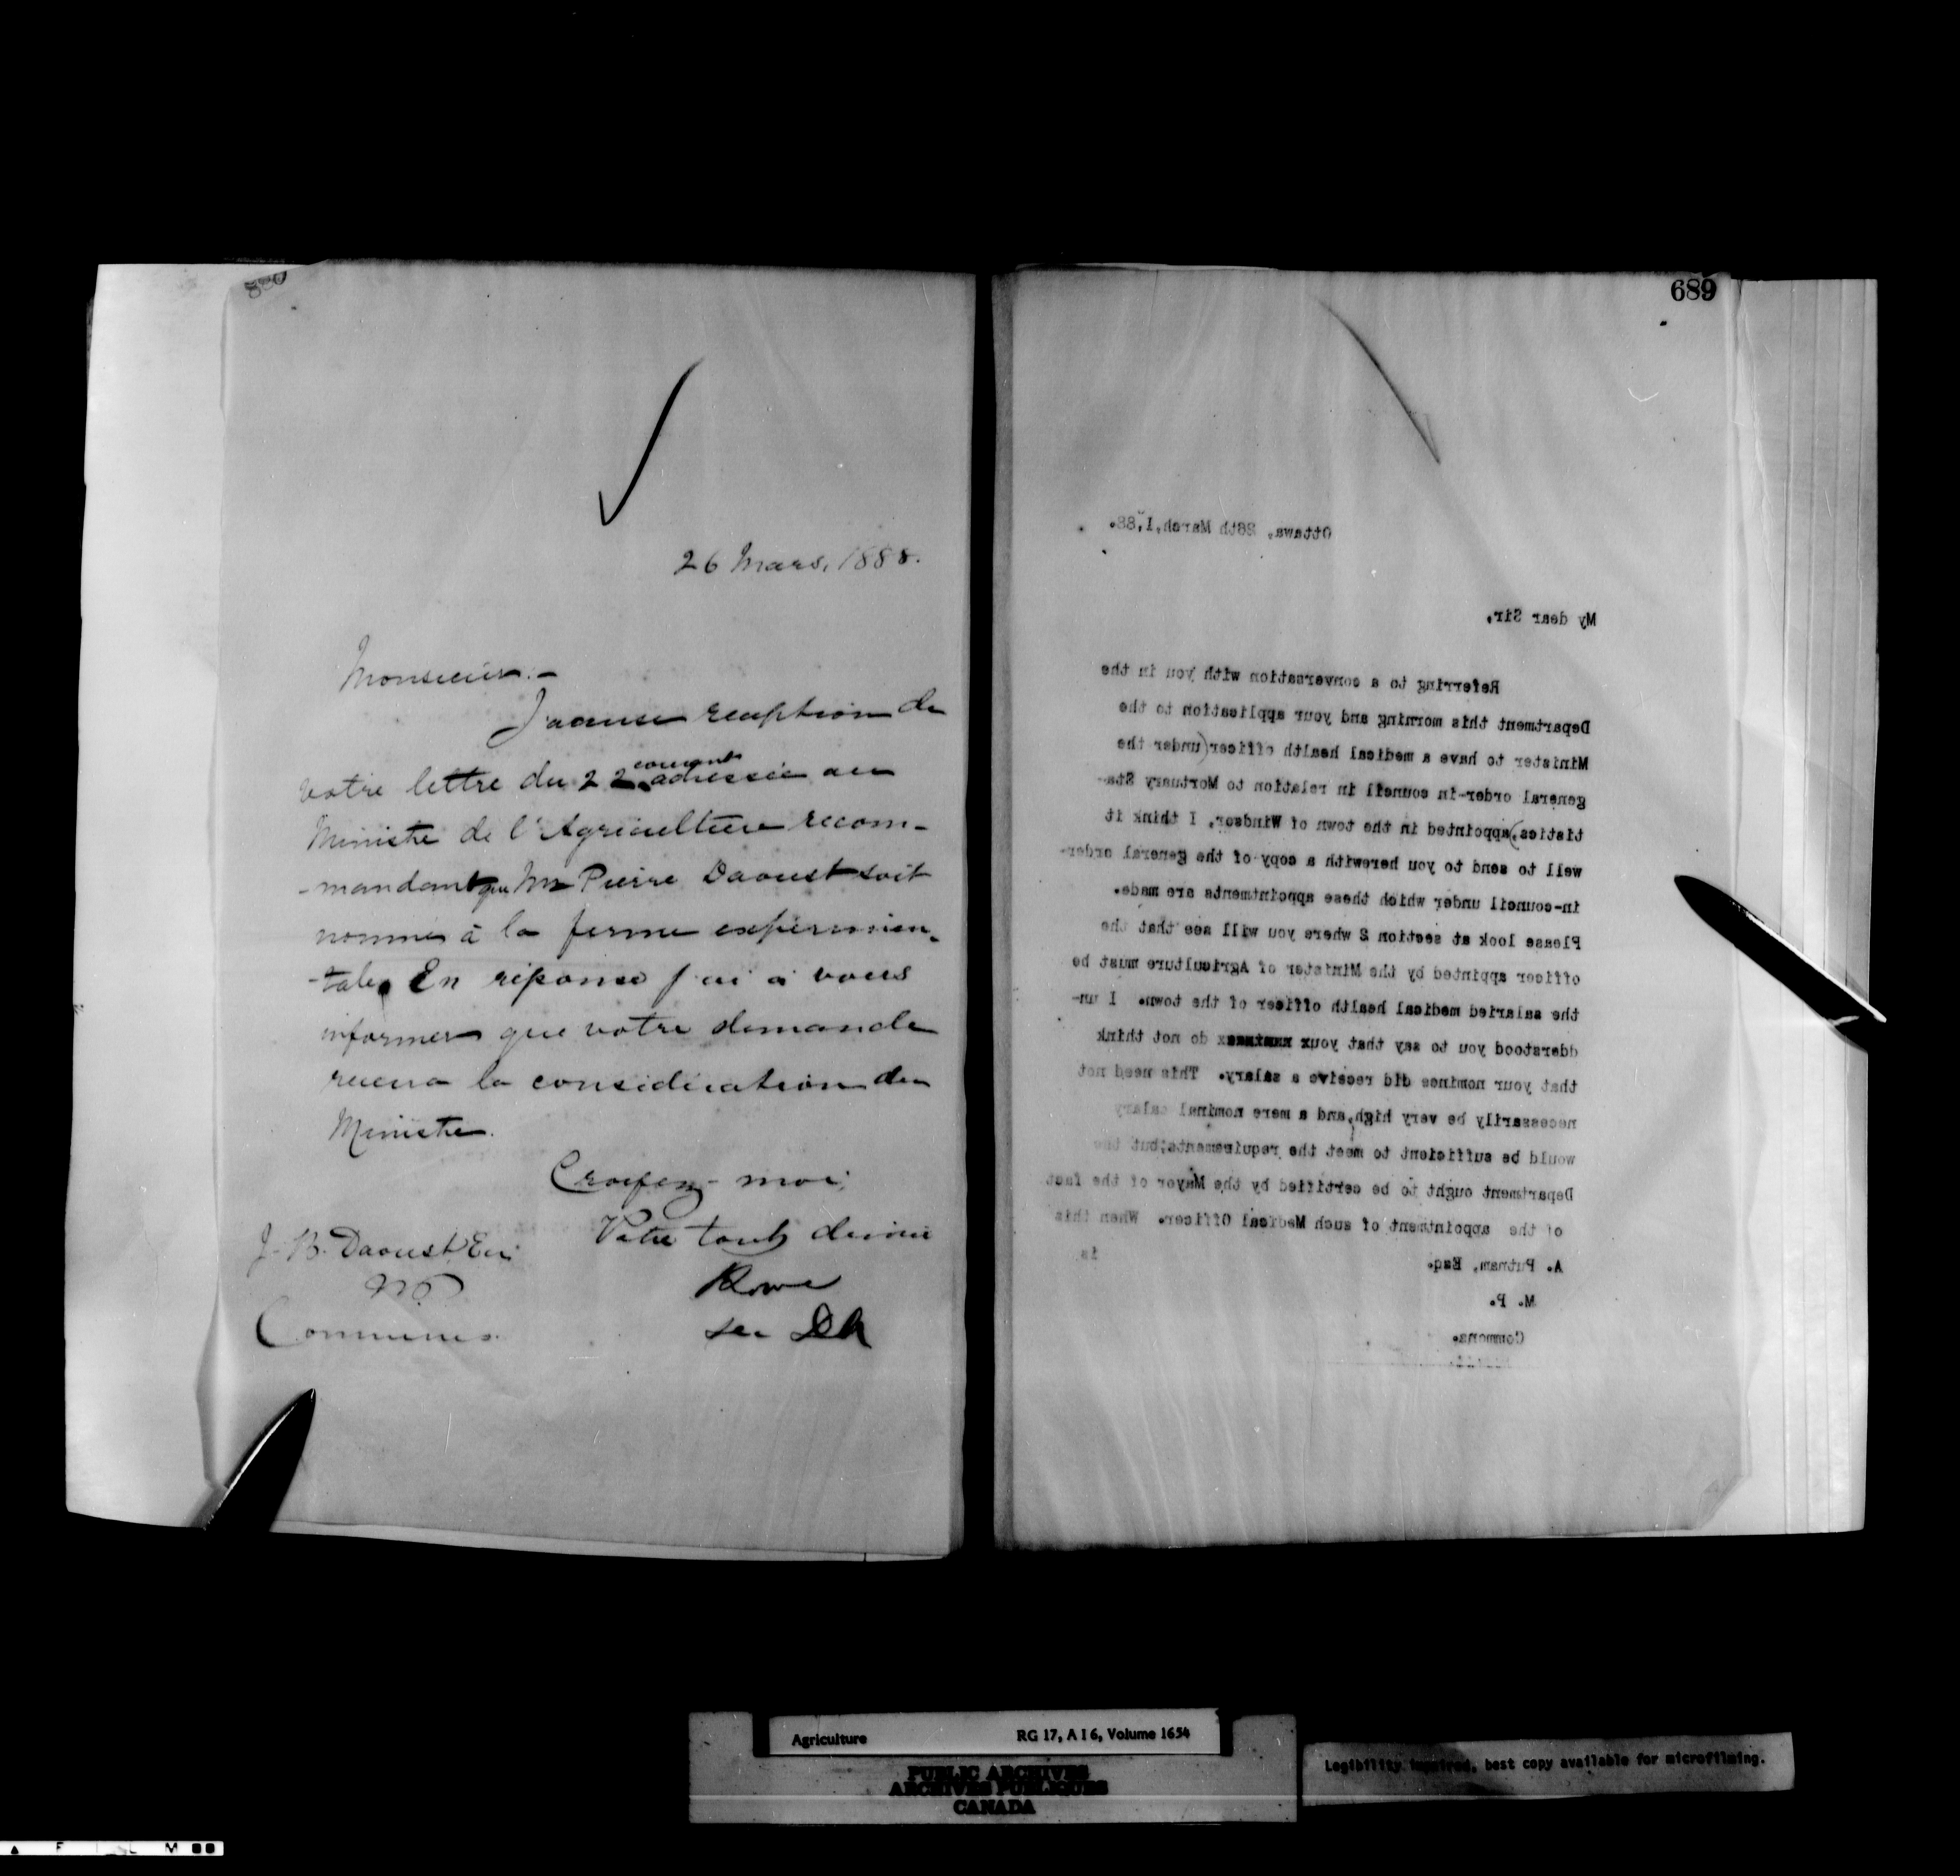 26 Mars, 1888.
Monsieur:-
J'accuse reception de
votre lettre du 22 courant adressée au
Ministre de l'Agriculture recom-
-mandant que Mr Pierre Daoust soit
nommé à la ferme experimen-
-tale. En réponse j'ai à vous
informer que votre demande
recevra la considération du
Ministre.
Croyez-moi,
Votre tout dévoué
J. B. Daoust Ecr
MP
Communes.
Sec DA
689
Ottawa, 26th March,1,88.
My dear Sir,
Referring to a conversation with you in the
Department this morning and your application to the
Minister to have a medical health officer(under the
general order-in council in relation to Mortuary Sta-
tistics,)appointed in the town of Windsor, I think it
well to send to you herewith a copy of the general order-
in-council under which these appointments are made.
Please look at section 2 where you will see that the
officer appinted by the Minister of Agriculture must be
the salaried medical health officer of the town. I un-
dderstood you to say that youx do not think
that your nominee did receive a salary. This need not
necessarily be very high,and a mere nominal salary
would be sufficient to meet the requirements;but the
Department ought to be certified by the Mayor of the fact
of the appointment of such Medical Officer. When this
is
A. Putnam, Esq.
M. P.
Commons.
Agriculture RG 17, A I 6, Volume 1654
PUBLIC ARCHIVES
ARCHIVES PUBLIQUES
CANADA
Legibility impaired, best copy available for microfilming.